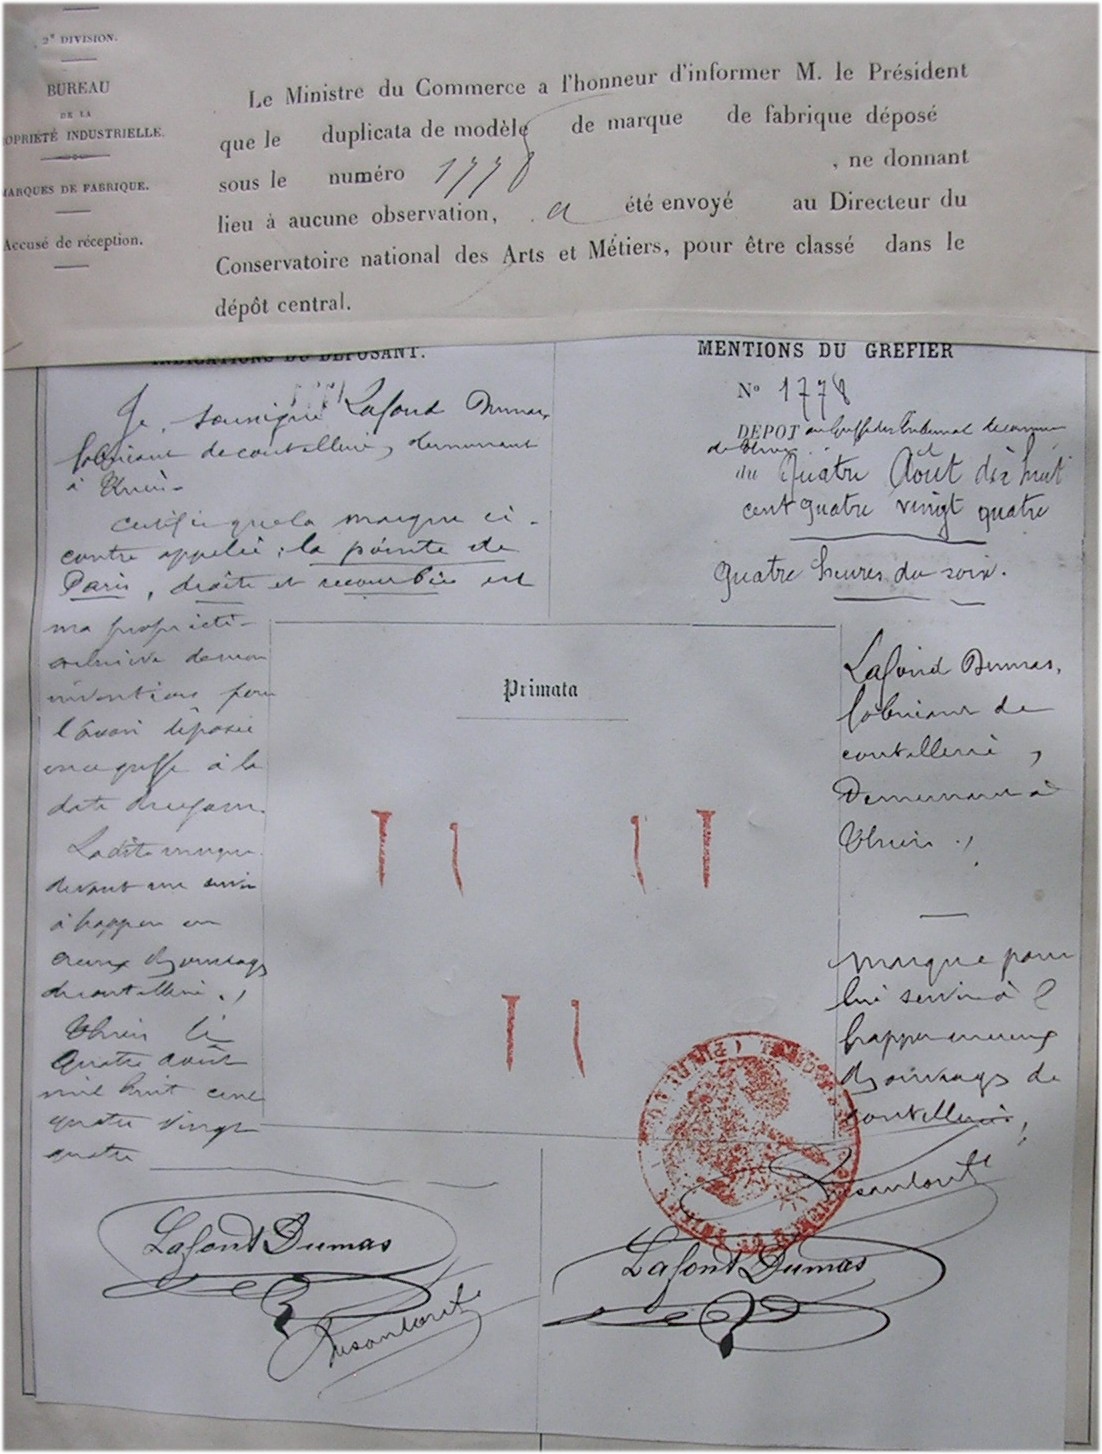 2e DIVISION.
BUREAU
DE LA
OPRIÉTÉ INDUSTRIELLE.
MARQUES DE FABRIQUE.
Accusé de réception.
Le Ministre du Commerce a l'honneur d'informer M. le Président
que le duplicata de modèle de marque de fabrique déposé
sous le numéro 1778 , ne donnant
lieu à aucune observation, a été envoyé au Directeur du
Conservatoire national des Arts et Métiers, pour être classé dans le
dépôt central.
INDICATIONS DU DÉPOSANT.
Je soussigné Lafond Dumas
fabricant de coutellerie, demeurant
à Thiers
certifie que la marque ci-
contre appelée : la pointe de
Paris, droite et recourbée est
ma propriété
exclusive de mon
invention pour
l'avoir déposée
au greffe à la
date de ce jour.
Ladite marque
devant me servir
à frapper en
creux des ouvrages
de coutellerie.
Thiers le
quatre août
mil huit cent
quatre vingt
quatre
Lafont Dumas
MENTIONS DU GREFIER
N° 1778
DÉPOT au Greffe du Tribunal de commerce
de Thiers
du Quatre Août dix huit
cent quatre vingt quatre
quatre heures du soir.
Primata
Lafond Dumas,
fabricant de
coutellerie,
Demeurant à
Thiers.
marque pour
lui servir à
frapper en creux
des ouvrages de
coutellerie,
Lafont Dumas